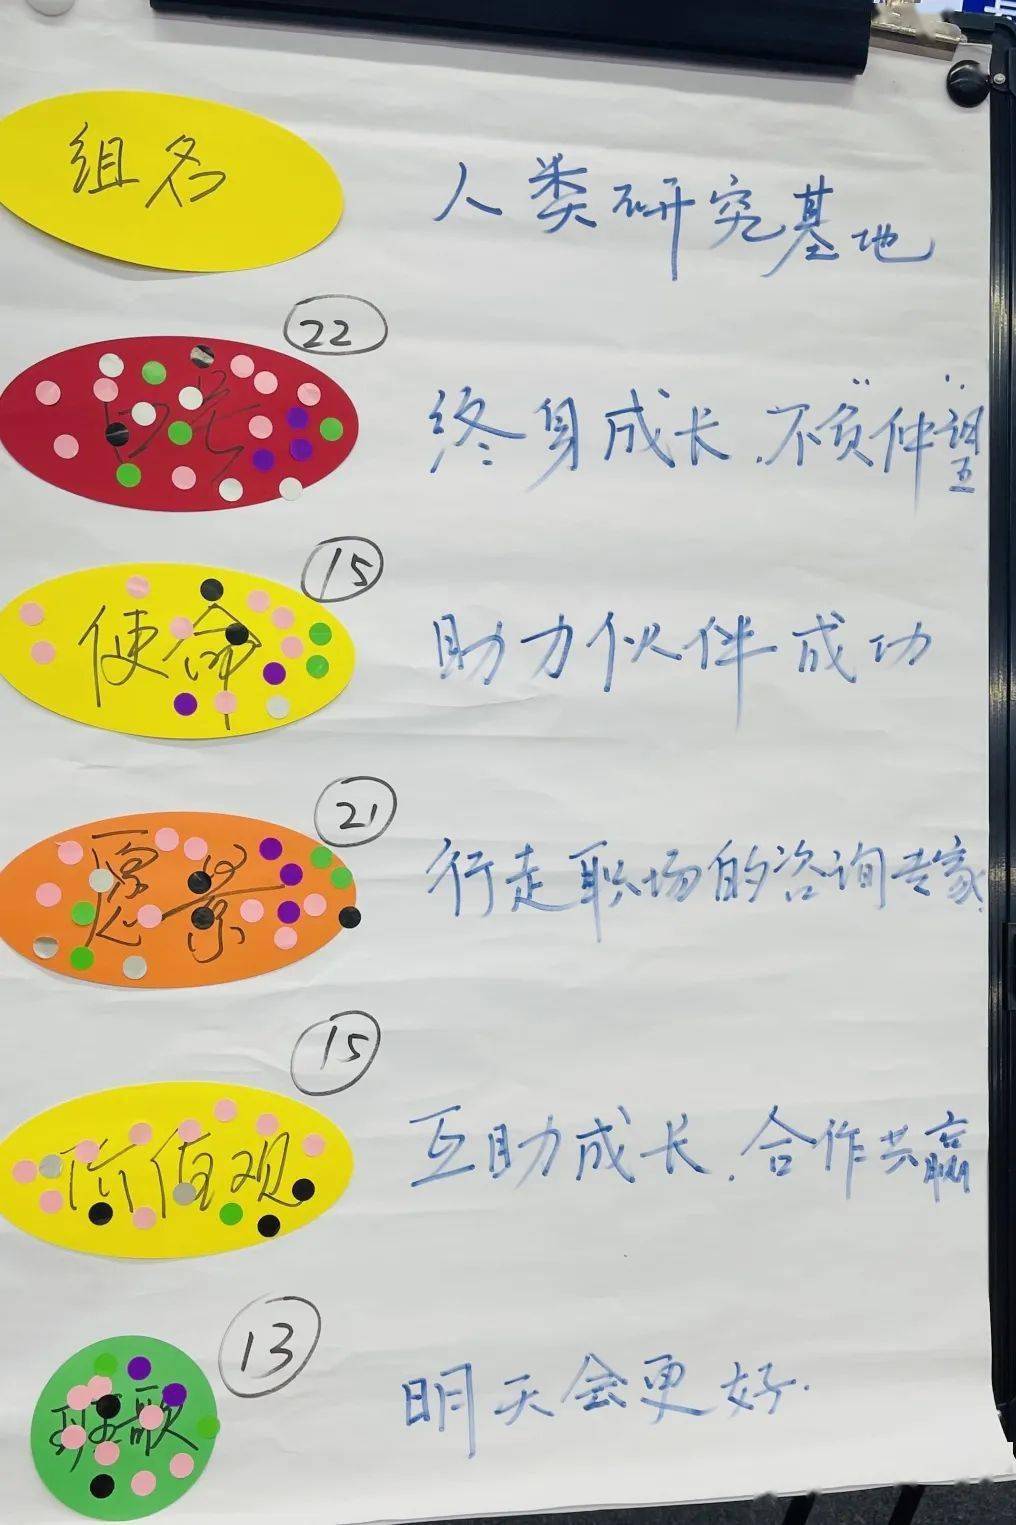 组名 人类研究基地
22
口号 终身成长.不"负仲望"
15
使命 助力伙伴成功
21
愿景 行走职场的咨询专家.
15
价值观 互助成长.合作共赢
13
班歌 明天会更好.